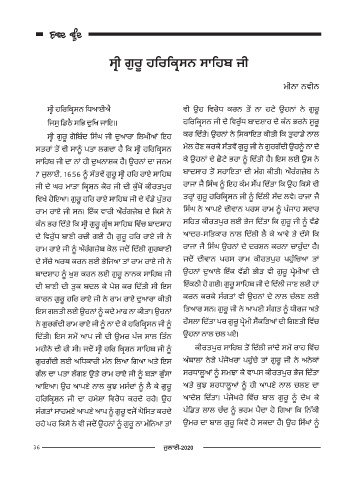 ਰੂਹਾਨੀ ਬੂੰਦ
ਸ੍ਰੀ ਗੁਰੂ ਹਰਿਕ੍ਰਿਸਨ ਸਾਹਿਬ ਜੀ
ਮੀਨਾ ਨਵੀਨ
ਸ੍ਰੀ ਹਰਿਕ੍ਰਿਸਨ ਧਿਆਈਐ
ਜਿਸੁ ਡਿਠੈ ਸਭਿ ਦੁਖਿ ਜਾਇ॥
ਸ੍ਰੀ ਗੁਰੂ ਗੋਬਿੰਦ ਸਿੰਘ ਜੀ ਦੁਆਰਾ ਲਿਖੀਆਂ ਇਹ
ਸਤਰਾਂ ਤੋਂ ਵੀ ਸਾਨੂੰ ਪਤਾ ਲਗਦਾ ਹੈ ਕਿ ਸ੍ਰੀ ਹਰਿਕ੍ਰਿਸਨ
ਸਾਹਿਬ ਜੀ ਦਾ ਨਾਂ ਹੀ ਦੁਖਨਾਸ਼ਕ ਹੈ। ਉਹਨਾਂ ਦਾ ਜਨਮ
7 ਜੁਲਾਈ, 1656 ਨੂੰ ਸੱਤਵੇਂ ਗੁਰੂ ਸ੍ਰੀ ਹਰਿ ਰਾਏ ਸਾਹਿਬ
ਜੀ ਦੇ ਘਰ ਮਾਤਾ ਕ੍ਰਿਸ਼ਨ ਕੌਰ ਜੀ ਦੀ ਕੁੱਖੋਂ ਕੀਰਤਪੁਰ
ਵਿਖੇ ਹੋਇਆ। ਗੁਰੂ ਹਰਿ ਰਾਏ ਸਾਹਿਬ ਜੀ ਦੇ ਵੱਡੇ ਪੁੱਤਰ
ਰਾਮ ਰਾਏ ਜੀ ਸਨ। ਇੱਕ ਵਾਰੀ ਔਰੰਗਜ਼ੇਬ ਦੇ ਕਿਸੇ ਨੇ
ਕੰਨ ਭਰ ਦਿੱਤੇ ਕਿ ਸ੍ਰੀ ਗੁਰੂ ਗ੍ਰੰਥ ਸਾਹਿਬ ਵਿੱਚ ਬਾਦਸ਼ਾਹ
ਦੇ ਵਿਰੁੱਧ ਬਾਣੀ ਰਚੀ ਗਈ ਹੈ। ਗੁਰੂ ਹਰਿ ਰਾਏ ਜੀ ਨੇ
ਰਾਮ ਰਾਏ ਜੀ ਨੂੰ ਔਰੰਗਜ਼ੇਬ ਕੋਲ ਜਦੋਂ ਦਿੱਲੀ ਗੁਰਬਾਣੀ
ਦੇ ਸੱਚੇ ਅਰਥ ਕਰਨ ਲਈ ਭੇਜਿਆ ਤਾਂ ਰਾਮ ਰਾਏ ਜੀ ਨੇ
ਬਾਦਸ਼ਾਹ ਨੂੰ ਖੁਸ਼ ਕਰਨ ਲਈ ਗੁਰੂ ਨਾਨਕ ਸਾਹਿਬ ਜੀ
ਦੀ ਬਾਣੀ ਦੀ ਤੁਕ ਬਦਲ ਕੇ ਪੇਸ਼ ਕਰ ਦਿੱਤੀ ਸੀ ਇਸ
ਕਾਰਨ ਗੁਰੂ ਹਰਿ ਰਾਏ ਜੀ ਨੇ ਰਾਮ ਰਾਏ ਦੁਆਰਾ ਕੀਤੀ
ਇਸ ਗਲਤੀ ਲਈ ਉਹਨਾਂ ਨੂੰ ਕਦੇ ਮਾਫ਼ ਨਾ ਕੀਤਾ। ਉਹਨਾਂ
ਨੇ ਗੁਰਗੱਦੀ ਰਾਮ ਰਾਏ ਜੀ ਨੂੰ ਨਾ ਦੇ ਕੇ ਹਰਿਕ੍ਰਿਸਨ ਜੀ ਨੂੰ
ਦਿੱਤੀ। ਇਸ ਸਮੇਂ ਆਪ ਜੀ ਦੀ ਉਮਰ ਪੰਜ ਸਾਲ ਤਿੰਨ
ਮਹੀਨੇ ਦੀ ਹੀ ਸੀ। ਜਦੋਂ ਸ੍ਰੀ ਹਰਿ ਕ੍ਰਿਸਨ ਸਾਹਿਬ ਜੀ ਨੂੰ
ਗੁਰਗੱਦੀ ਲਈ ਅਧਿਕਾਰੀ ਮੰਨ ਲਿਆ ਗਿਆ ਅਤੇ ਇਸ
ਗੱਲ ਦਾ ਪਤਾ ਲੱਗਣ ਉਤੇ ਰਾਮ ਰਾਏ ਜੀ ਨੂੰ ਬੜਾ ਗੁੱਸਾ
ਆਇਆ। ਉਹ ਆਪਣੇ ਨਾਲ ਕੁਝ ਮਸੰਦਾਂ ਨੂੰ ਲੈ ਕੇ ਗੁਰੂ
ਹਰਿਕ੍ਰਿਸ਼ਨ ਜੀ ਦਾ ਹਮੇਸ਼ਾ ਵਿਰੋਧ ਕਰਦੇ ਰਹੇ। ਉਹ
ਸੰਗਤਾਂ ਸਾਹਮਣੇ ਆਪਣੇ ਆਪ ਨੂੰ ਗੁਰੂ ਵਜੋਂ ਘੋਸ਼ਿਤ ਕਰਦੇ
ਰਹੇ ਪਰ ਕਿਸੇ ਨੇ ਵੀ ਜਦੋਂ ਉਹਨਾਂ ਨੂੰ ਗੁਰੂ ਨਾ ਮੰਨਿਆ ਤਾਂ
ਵੀ ਉਹ ਵਿਰੋਧ ਕਰਨ ਤੋਂ ਨਾ ਹਟੇ ਉਹਨਾਂ ਨੇ ਗੁਰੂ
ਹਰਿਕ੍ਰਿਸਨ ਜੀ ਦੇ ਵਿਰੁੱਧ ਬਾਦਸ਼ਾਹ ਦੇ ਕੰਨ ਭਰਨੇ ਸ਼ੁਰੂ
ਕਰ ਦਿੱਤੇ। ਉਹਨਾਂ ਨੇ ਸ਼ਿਕਾਇਤ ਕੀਤੀ ਕਿ ਤੁਹਾਡੇ ਨਾਲ
ਮੇਲ ਹੋਣ ਕਰਕੇ ਸੱਤਵੇਂ ਗੁਰੂ ਜੀ ਨੇ ਗੁਰਗੱਦੀ ਉਹਨੂੰ ਨਾ ਦੇ
ਕੇ ਉਹਨਾਂ ਦੇ ਛੋਟੇ ਭਰਾ ਨੂੰ ਦਿੱਤੀ ਹੈ। ਇਸ ਲਈ ਉਸ ਨੇ
ਬਾਦਸ਼ਾਹ ਤੋਂ ਸਹਾਇਤਾ ਦੀ ਮੰਗ ਕੀਤੀ। ਔਰੰਗਜ਼ੇਬ ਨੇ
ਰਾਜਾ ਜੈ ਸਿੰਘ ਨੂੰ ਇਹ ਕੰਮ ਸੌਂਪ ਦਿੱਤਾ ਕਿ ਉਹ ਕਿਸੇ ਵੀ
ਤਰ੍ਹਾਂ ਗੁਰੂ ਹਰਿਕ੍ਰਿਸਨ ਜੀ ਨੂੰ ਦਿੱਲੀ ਸੱਦ ਲਵੇ। ਰਾਜਾ ਜੈ
ਸਿੰਘ ਨੇ ਆਪਣੇ ਦੀਵਾਨ ਪਰਸ ਰਾਮ ਨੂੰ ਪੰਜਾਹ ਸਵਾਰ
ਸਹਿਤ ਕੀਰਤਪੁਰ ਲਈ ਭੇਜ ਦਿੱਤਾ ਕਿ ਗੁਰੂ ਜੀ ਨੂੰ ਵੱਡੇ
ਆਦਰ-ਸਤਿਕਾਰ ਨਾਲ ਦਿੱਲੀ ਲੈ ਕੇ ਆਵੇ ਤੇ ਦੱਸੇ ਕਿ
ਰਾਜਾ ਜੈ ਸਿੰਘ ਉਹਨਾਂ ਦੇ ਦਰਸ਼ਨ ਕਰਨਾ ਚਾਹੁੰਦਾ ਹੈ।
ਜਦੋਂ ਦੀਵਾਨ ਪਰਸ ਰਾਮ ਕੀਰਤਪੁਰ ਪਹੁੰਚਿਆ ਤਾਂ
ਉਹਨਾਂ ਦੁਆਲੇ ਇੱਕ ਵੱਡੀ ਭੀੜ ਵੀ ਗੁਰੂ ਪ੍ਰੇਮੀਆਂ ਦੀ
ਇੱਕਠੀ ਹੋ ਗਈ। ਗੁਰੂ ਸਾਹਿਬ ਜੀ ਦੇ ਦਿੱਲੀ ਜਾਣ ਲਈ ਹਾਂ
ਕਰਨ ਕਰਕੇ ਸੰਗਤਾਂ ਵੀ ਉਹਨਾਂ ਦੇ ਨਾਲ ਚੱਲਣ ਲਈ
ਤਿਆਰ ਸਨ। ਗੁਰੂ ਜੀ ਨੇ ਆਪਣੀ ਸੰਗਤ ਨੂੰ ਧੀਰਜ ਅਤੇ
ਹੌਸਲਾ ਦਿੱਤਾ ਪਰ ਗੁਰੂ ਪ੍ਰੇਮੀ ਸੈਂਕੜਿਆਂ ਦੀ ਗਿਣਤੀ ਵਿੱਚ
ਉਹਨਾਂ ਨਾਲ ਚਲ ਪਏ।
ਕੀਰਤਪੁਰ ਸਾਹਿਬ ਤੋਂ ਦਿੱਲੀ ਜਾਂਦੇ ਸਮੇਂ ਰਾਹ ਵਿੱਚ
ਅੰਬਾਲਾ ਨੇੜੇ ਪੰਜੋਖਰਾ ਪਹੁੰਚੇ ਤਾਂ ਗੁਰੂ ਜੀ ਨੇ ਅਨੇਕਾਂ
ਸ਼ਰਧਾਲੂਆਂ ਨੂੰ ਸਮਝਾ ਕੇ ਵਾਪਸ ਕੀਰਤਪੁਰ ਭੇਜ ਦਿੱਤਾ
ਅਤੇ ਕੁਝ ਸ਼ਰਧਾਲੂਆਂ ਨੂੰ ਹੀ ਆਪਣੇ ਨਾਲ ਚਲਣ ਦਾ
ਆਦੇਸ਼ ਦਿੱਤਾ। ਪੰਜੋਖਰੇ ਵਿੱਚ ਬਾਲ ਗੁਰੂ ਨੂੰ ਦੇਖ ਕੇ
ਪੰਡਿਤ ਲਾਲ ਚੰਦ ਨੂੰ ਭਰਮ ਪੈਦਾ ਹੋ ਗਿਆ ਕਿ ਨਿੱਕੀ
ਉਮਰ ਦਾ ਬਾਲ ਗੁਰੂ ਕਿਵੇਂ ਹੋ ਸਕਦਾ ਹੈ। ਉਹ ਸਿੱਖਾਂ ਨੂੰ
36
ਜੁਲਾਈ-2020